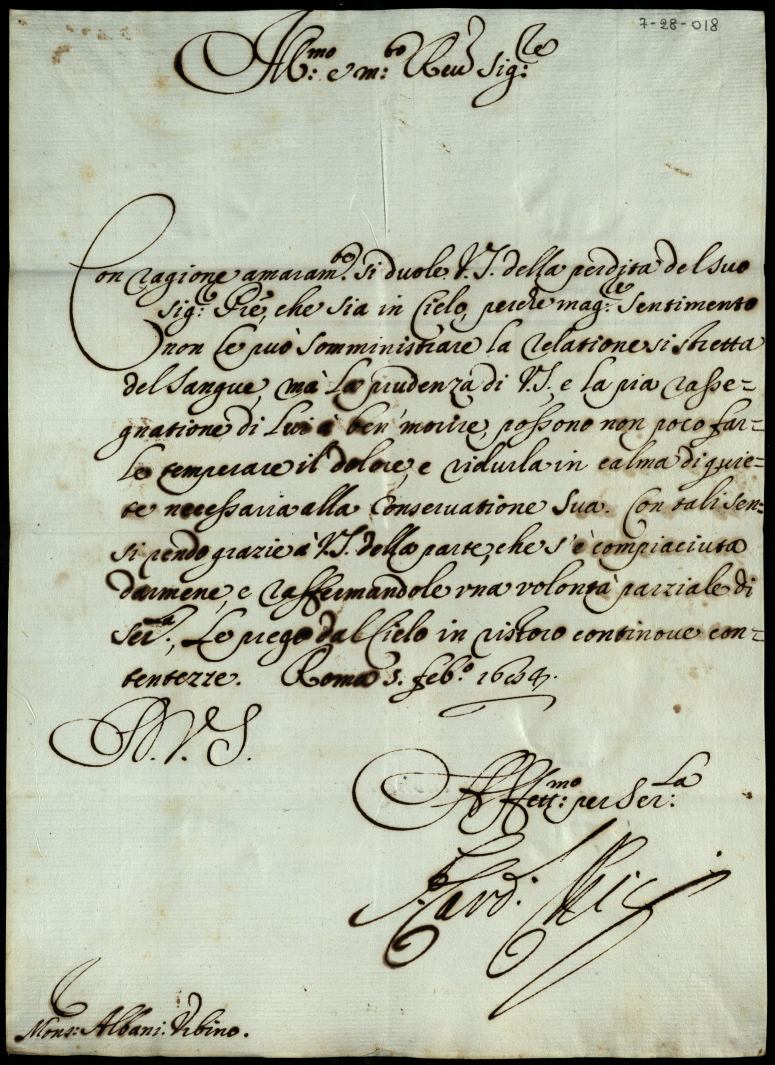 7-28-018
Ill.mo e m.to Reu. Sig.re
Con ragione amaram.te si duole V.S. della perdita del suo
Sig.r Pře, che sia in Cielo, perche mag.re sentimento
non le può somministrare la relatione si stretta
del sangue, mà la prudenza di V.S. e la pia rasse=
gnatione di Lui à ben morire, possono non poco far=
Le temperare il dolore, e ridurla in calma di quie=
te necessaria alla conseruatione Sua. Con tali sen=
si rendo grazie à V.S. della parte, che s'è compiaciuta
darmene, e raffermandole vna volontà parziale di
Ser.la, Le prego dal Cielo in ristoro continoue con=
tentezze. Roma 5. feb.o
V.S.
Affett.mo per Ser.la
Card. Chigi
Mons: Albani. Vrbino.